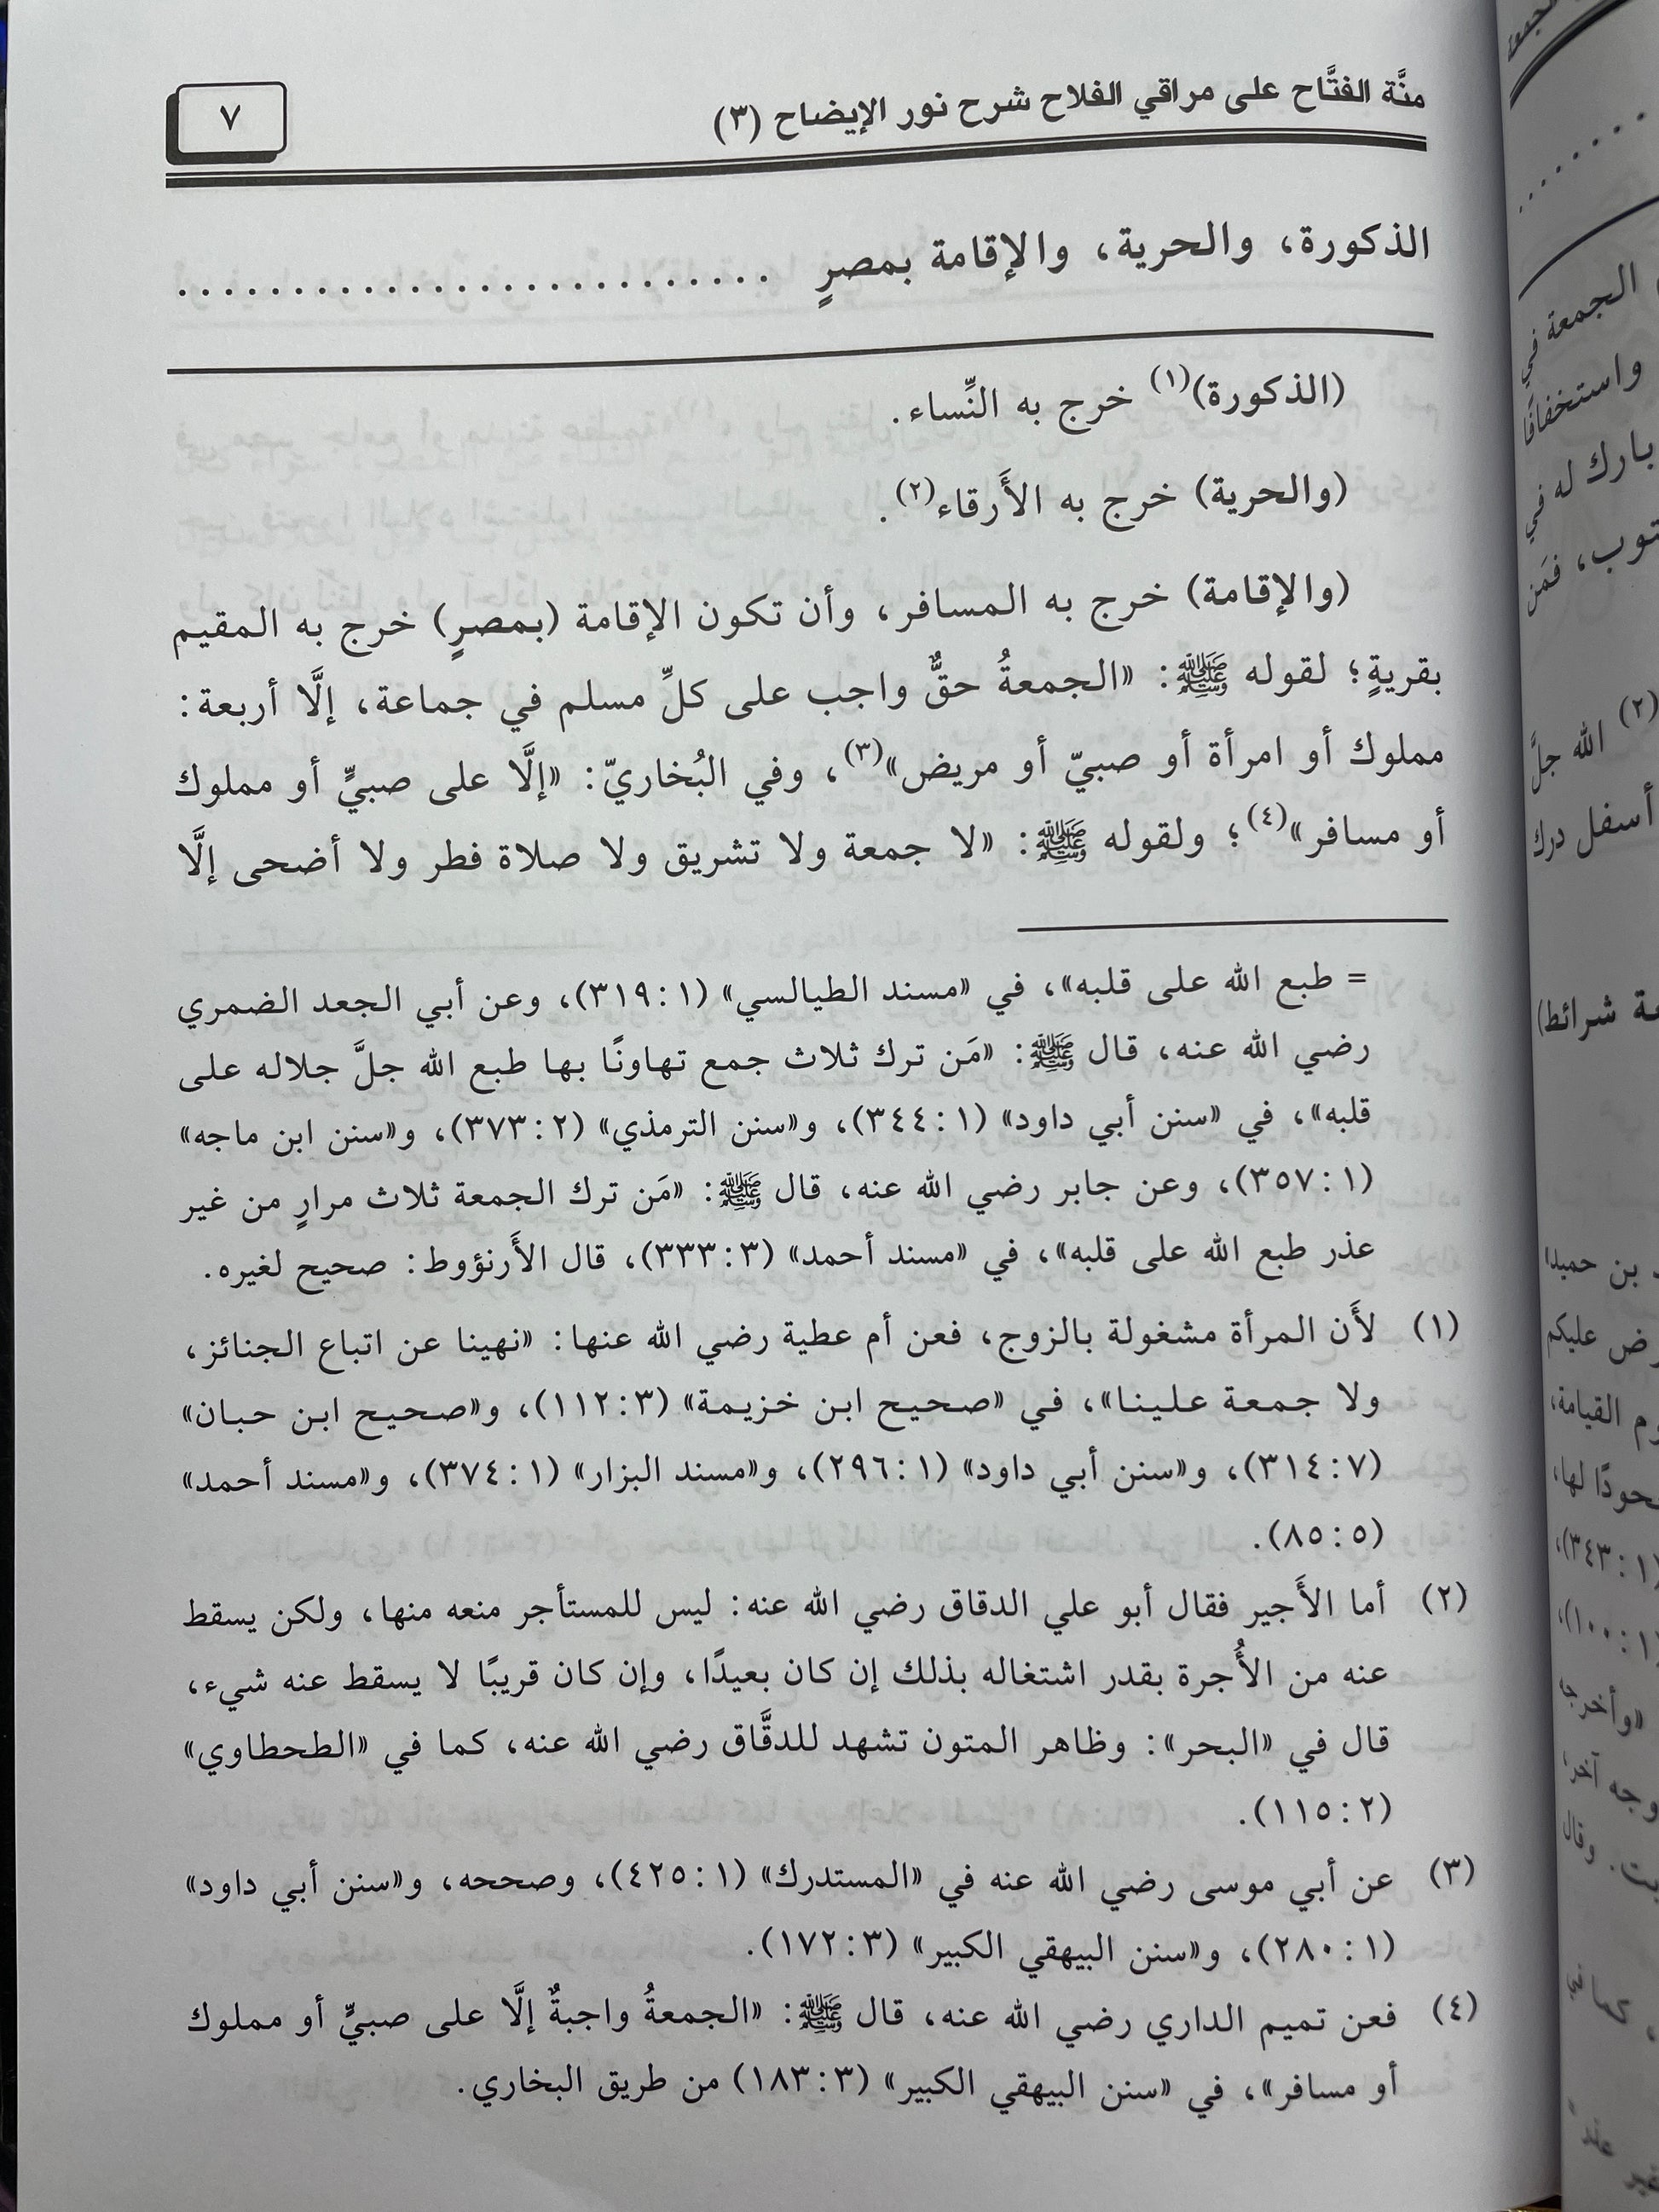 منَّة الفتَّاح على مراقي الفلاح شرح نور الإيضاح (٣)
٧
الذكورة، والحرية، والإقامة بمصرٍ ..........................
(الذكورة)(١) خرج به النِّساء.
(والحرية) خرج به الأَرقاء(٢).
(والإقامة) خرج به المسافر، وأن تكون الإقامة (بمصرٍ) خرج به المقيم
بقريةٍ؛ لقوله ﷺ: «الجمعةُ حقٌّ واجب على كلِّ مسلم في جماعة، إلَّا أربعة:
مملوك أو امرأة أو صبيّ أو مريض»(٣)، وفي البُخاريّ: «إلَّا على صبيٍّ أو مملوك
أو مسافر»(٤)؛ ولقوله ﷺ: «لا جمعة ولا تشريق ولا صلاة فطر ولا أضحى إلَّا
= طبع الله على قلبه»، في «مسند الطيالسي» (١: ٣١٩)، وعن أبي الجعد الضمري
رضي الله عنه، قال ﷺ: «مَن ترك ثلاث جمع تهاونًا بها طبع الله جلَّ جلاله على
قلبه»، في «سنن أبي داود» (١: ٣٤٤)، و«سنن الترمذي» (٢: ٣٧٣)، و«سنن ابن ماجه»
(١: ٣٥٧)، وعن جابر رضي الله عنه، قال ﷺ: «مَن ترك الجمعة ثلاث مرارٍ من غير
عذر طبع الله على قلبه»، في «مسند أحمد» (٣: ٣٣٣)، قال الأَرنؤوط: صحيح لغيره.
(١) لأَن المرأة مشغولة بالزوج، فعن أم عطية رضي الله عنها: «نهينا عن اتباع الجنائز،
ولا جمعة علينا»، في «صحيح ابن خزيمة» (٣: ١١٢)، و«صحيح ابن حبان»
(٧: ٣١٤)، و«سنن أبي داود» (١: ٢٩٦)، و«مسند البزار» (١: ٣٧٤)، و«مسند أحمد»
(٥: ٨٥).
(٢) أما الأَجير فقال أبو علي الدقاق رضي الله عنه: ليس للمستأجر منعه منها، ولكن يسقط
عنه من الأُجرة بقدر اشتغاله بذلك إن كان بعيدًا، وإن كان قريبًا لا يسقط عنه شيء،
قال في «البحر»: وظاهر المتون تشهد للدقَّاق رضي الله عنه، كما في «الطحطاوي»
(٢: ١١٥).
(٣) عن أبي موسى رضي الله عنه في «المستدرك» (١: ٤٢٥)، وصححه، و«سنن أبي داود»
(١: ٢٨٠)، و«سنن البيهقي الكبير» (٣: ١٧٢).
(٤) فعن تميم الداري رضي الله عنه، قال ﷺ: «الجمعةُ واجبةٌ إلَّا على صبيٍّ أو مملوك
أو مسافر»، في «سنن البيهقي الكبير» (٣: ١٨٣) من طريق البخاري.
الجمعة في
واستخفافًا
بارك له في
فمَن
(٢) الله جلَّ
أسفل درك
شرائط)
بن حميد
عليكم
القيامة،
لها،
(١: ٣٤٣)،
آخر
وقال
كما في